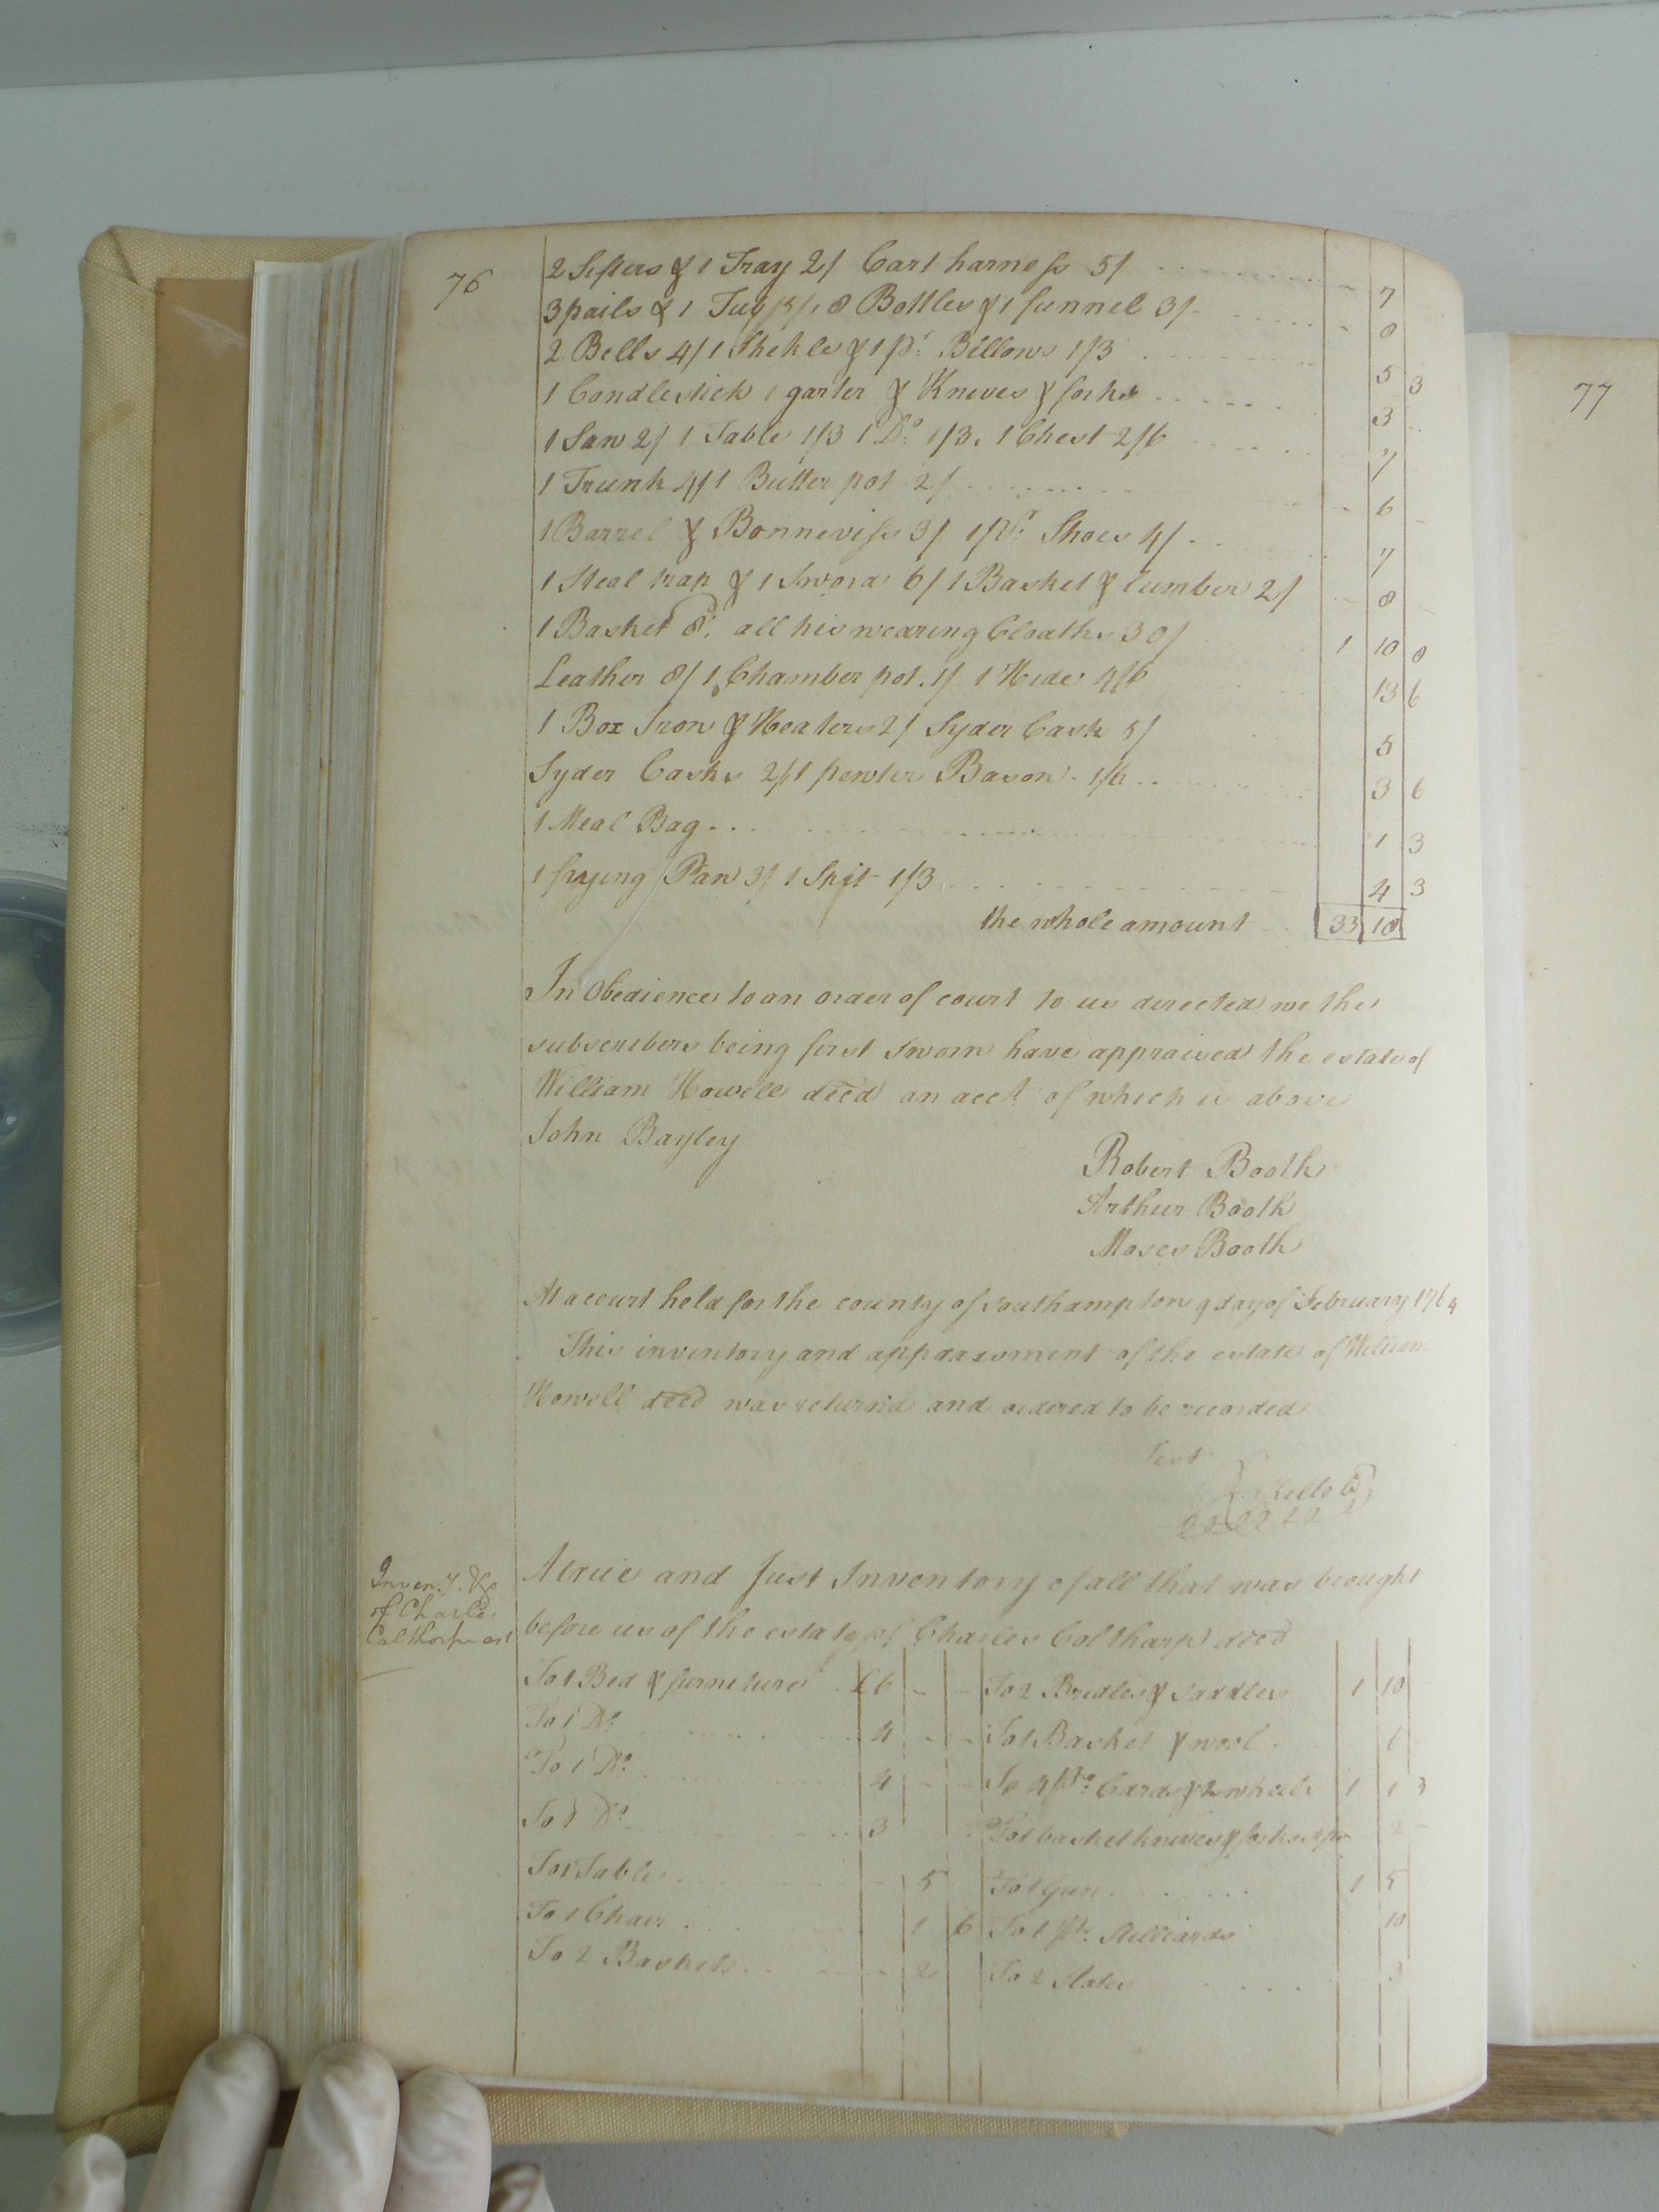 76
77
2 Sifters & 1 Tray 2/ Cart harness 5/ 7
3 pails & 1 Tug 5/, 8 Bottles & 1 funnel 3/ 8
2 Bells 4/ 1 Shekle & 1 pr. Bellows 1/3 5 3
1 Candlestick 1 garter & Knives & forks 3
1 Saw 2/ 1 Table 1/3 1 Do. 1/3, 1 Chest 2/6 7
1 Trunk 4/ 1 Butter pot 2/ 6
1 Barrel & Bonneviss 3/ 1 pr. Shoes 4/ 7
1 Steal trap & 1 Sword 6/ 1 Basket & lumber 2/ 8
1 Basket 8d. all his wearing Cloaths 30/ 1 10 8
Leather 8/ 1 Chamber pot. 1/ 1 Hide 4/6 13 6
1 Box Iron & Heaters 2/ Syder Cask 3/ 5
Syder Casks 2/ 1 pewter Bason 1/6 3 6
1 Meal Bag 1 3
1 frying Pan 3/ 1 Spit 1/3 4 3
the whole amount 33 18
In Obedience to an order of court to us directed we the
subscribers being first sworn have appraised the estate of
William Howell decd an acct. of which is above
John Bayley
Robert Booth
Arthur Booth
Moses Booth
At a court held for the county of Southampton 9 day of February 1764
This inventory and appraasment of the estate of William
Howell decd was returnd and ordered to be recorded
Test
Kello C
Inven.y. &c
of Charles
Calthorpe est
A true and Just Inventory of all that was brought
before us of the estate of Charles Coltharp decd
To 1 Bed & furniture £6 - - To 2 Bridles & Saddles 1 10
To 1 Do. 4 - - To 1 Basket & wool 6
To 1 Do. 4 - - To 4 prs. Cards & 2 wheels 1 1 3
To 1 Do. 3 To 1 basket knives & forks 2 -
To 1 Table 5 To 1 Gun 1 5
To 1 Chair 1 6 To 1 pr. Stilliards 10
To 2 Baskets 2 To 2 Slates 3